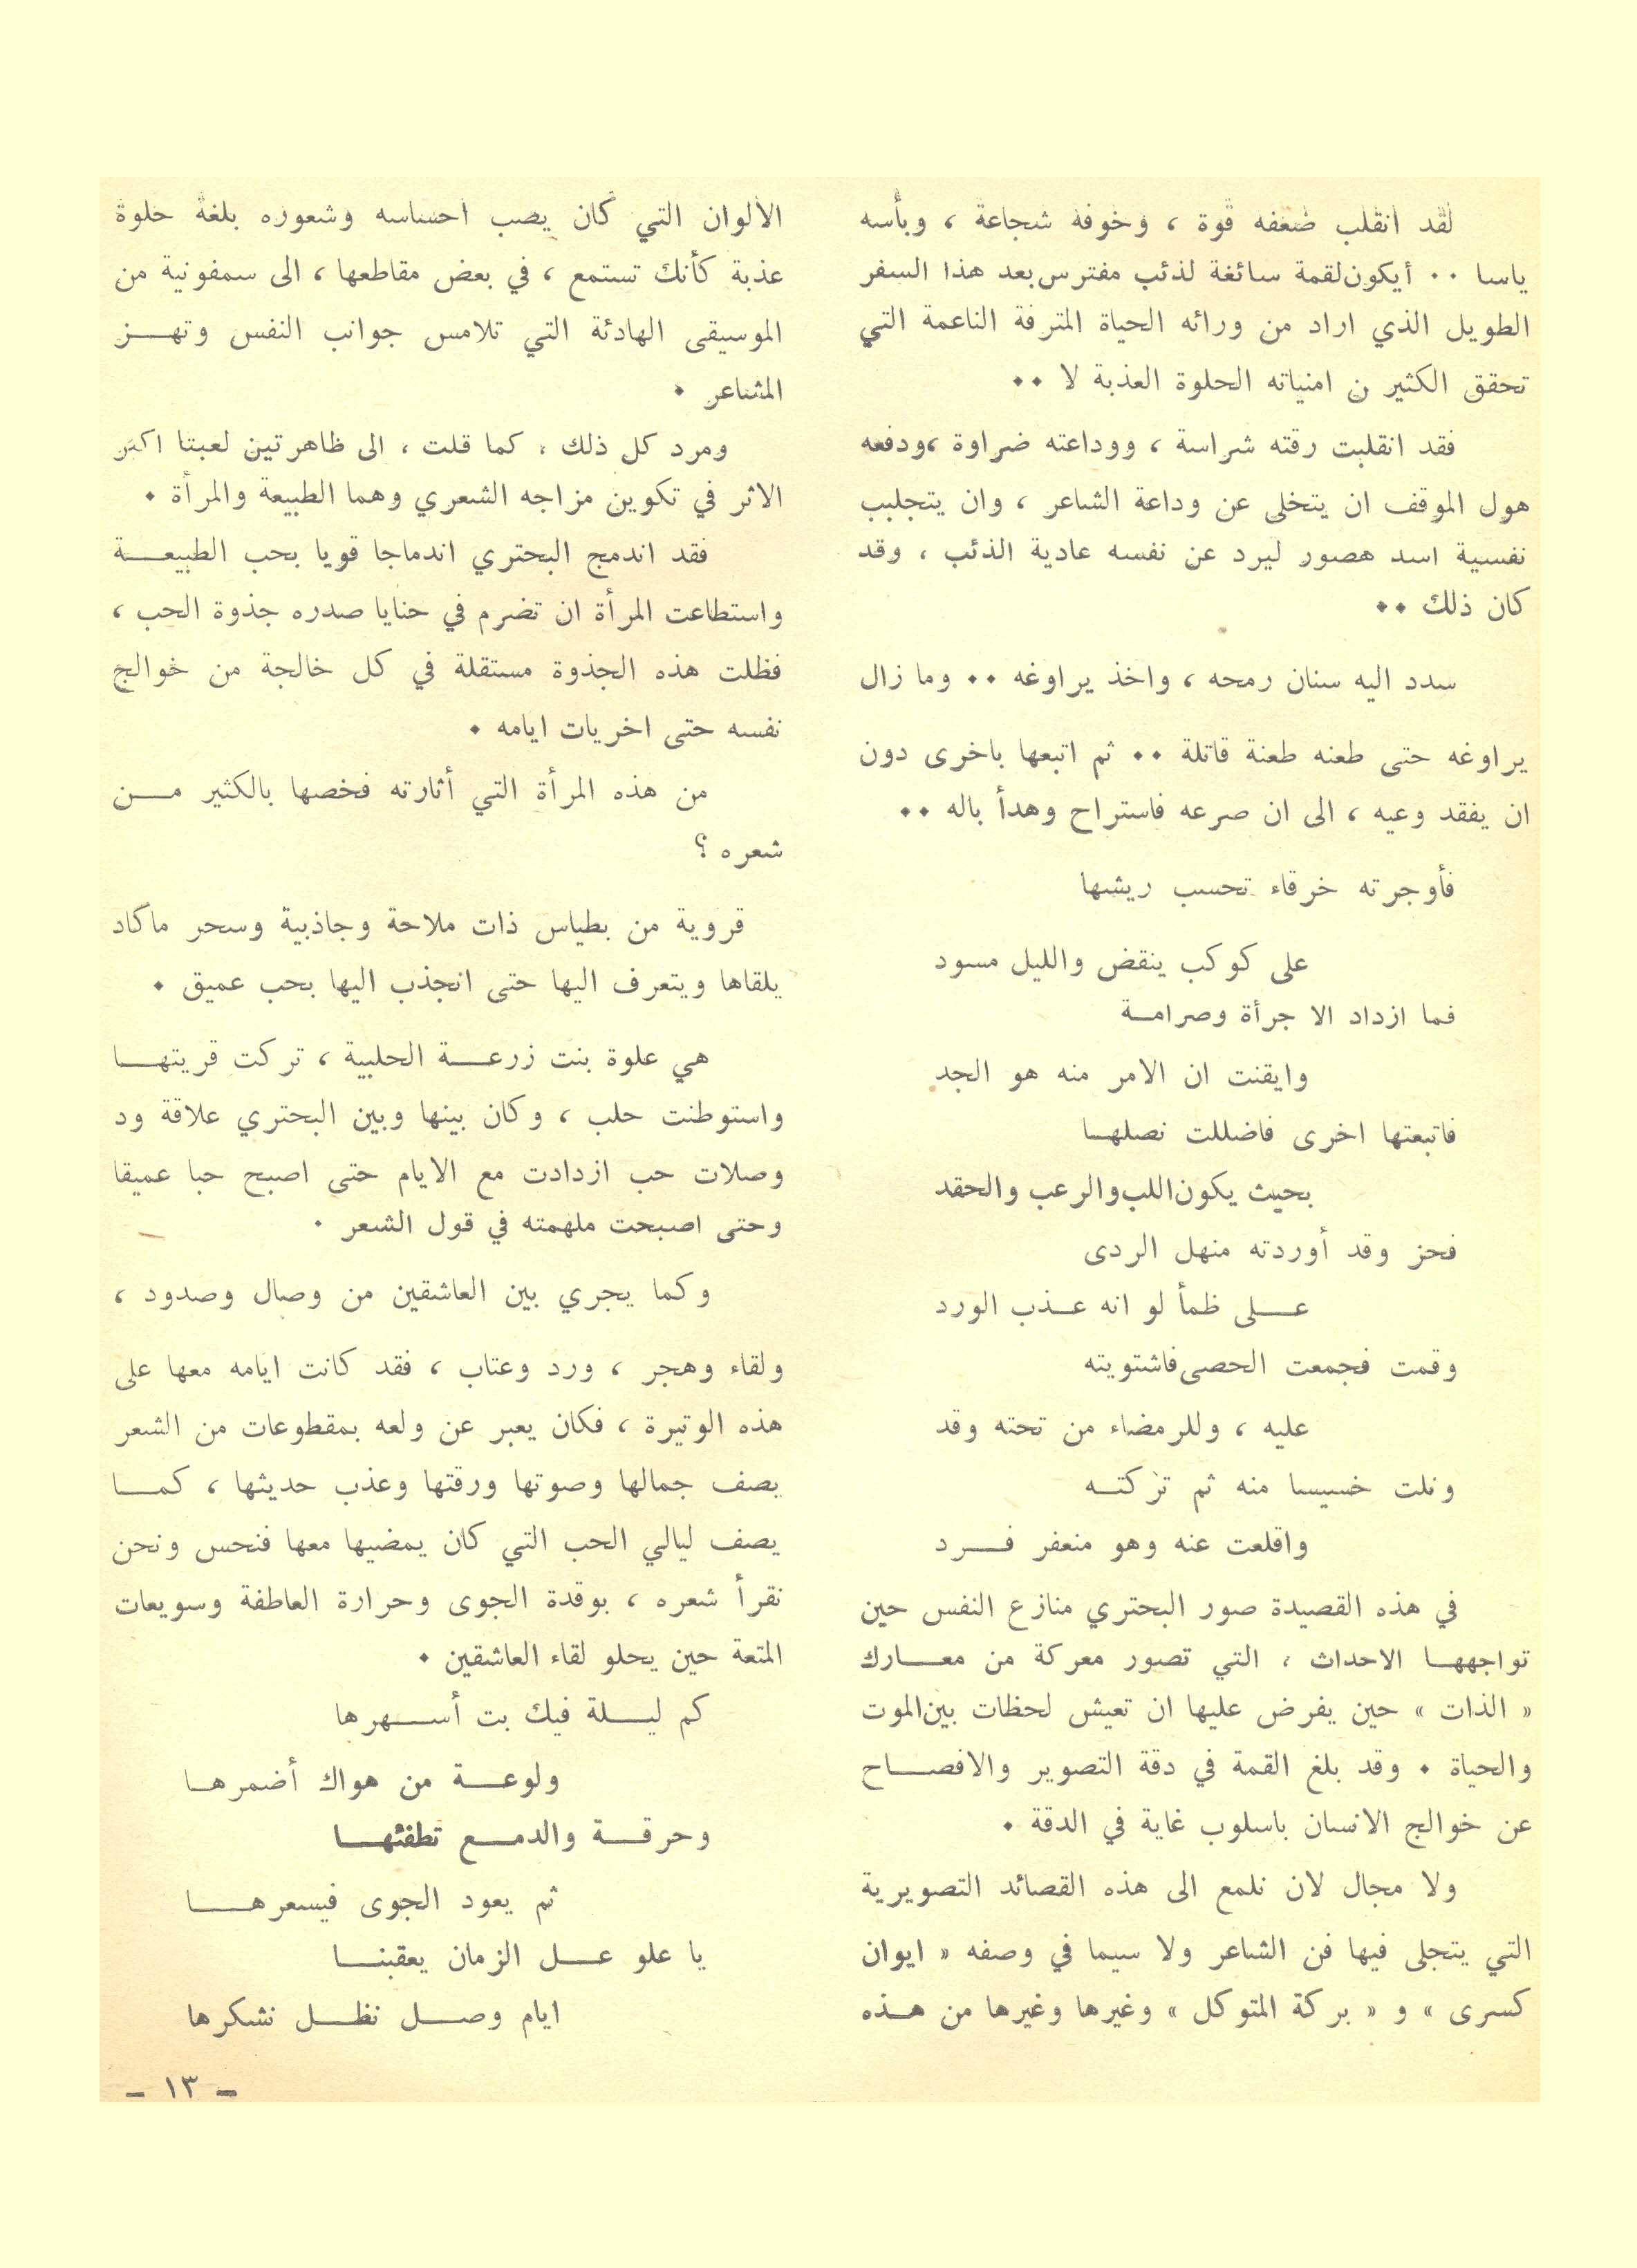 لقد انقلب ضعفه قوة ، وخوفه شجاعة ، وبأسه
ياسا ٠٠ أيكون لقمة سائغة لذئب مفترس بعد هذا السفر
الطويل الذي اراد من ورائه الحياة المترفة الناعمة التي
تحقق الكثير ن امنياته الحلوة العذبة لا ٠٠
فقد انقلبت رقته شراسة ، ووداعته ضراوة ،ودفعه
هول الموقف ان يتخلى عن وداعة الشاعر ، وان يتجلبب
نفسية اسد هصور ليرد عن نفسه عادية الذئب ، وقد
كان ذلك ٠٠
سدد اليه سنان رمحه ، واخذ يراوغه ٠٠ وما زال
يراوغه حتى طعنه طعنة قاتلة ٠٠ ثم اتبعها باخرى دون
ان يفقد وعيه ، الى ان صرعه فاستراح وهدأ باله ٠٠
فأوجرته خرقاء تحسب ريشها
على كوكب ينقض والليل مسود
فما ازداد الا جرأة وصرامـة
وايقنت ان الامر منه هو الجد
فاتبعتها اخرى فاضللت نصلهـا
بحيث يكون اللب والرعب والحقد
فحز وقد أوردته منهل الردى
عـــلى ظمأ لو انه عـذب الورد
وقمت فجمعت الحصى فاشتويته
عليه ، وللرمضاء من تحته وقد
ونلت خسيسا منه ثم تركتـه
واقلعت عنه وهو منعفر فــرد
في هذه القصيدة صور البحتري منازع النفس حين
تواجههـا الاحداث ، التي تصور معركة من معــارك
« الذات » حين يفرض عليها ان تعيش لحظات بين الموت
والحياة ٠ وقد بلغ القمة في دقة التصوير والافصــاح
عن خوالج الانسان باسلوب غاية في الدقة ٠
ولا مجال لان نلمع الى هذه القصائد التصويرية
التي يتجلى فيها فن الشاعر ولا سيما في وصفه « ايوان
كسرى » و « بركة المتوكل » وغيرها وغيرها من هـذه
الالوان التي كان يصب احساسه وشعوره بلغة حلوة
عذبة كأنك تستمع ، في بعض مقاطعها ، الى سمفونية من
الموسيقى الهادئة التي تلامس جوانب النفس وتهــز
المشاعر ٠
ومرد كل ذلك ، كما قلت ، الى ظاهرتين لعبتا اكبر
الاثر في تكوين مزاجه الشعري وهما الطبيعة والمرأة ٠
فقد اندمج البحتري اندماجا قويا بحب الطبيعــة
واستطاعت المرأة ان تضرم في حنايا صدره جذوة الحب ،
فظلت هذه الجذوة مستقلة في كل خالجة من خوالج
نفسه حتى اخريات ايامه ٠
من هذه المرأة التي أثارته فخصها بالكثير مــن
شعره ؟
قروية من بطياس ذات ملاحة وجاذبية وسحر ماكاد
يلقاها ويتعرف اليها حتى انجذب اليها بحب عميق ٠
هي علوة بنت زرعــة الحلبية ، تركت قريتهــا
واستوطنت حلب ، وكان بينها وبين البحتري علاقة ود
وصلات حب ازدادت مع الايام حتى اصبح حبا عميقا
وحتى اصبحت ملهمته في قول الشعر ٠
وكما يجري بين العاشقين من وصال وصدود ،
ولقاء وهجر ، ورد وعتاب ، فقد كانت ايامه معها على
هذه الوتيرة ، فكان يعبر عن ولعه بمقطوعات من الشعر
يصف جمالها وصوتها ورقتها وعذب حديثها ، كمــا
يصف ليالي الحب التي كان يمضيها معها فنحس ونحن
نقرأ شعره ، بوقدة الجوى وحرارة العاطفة وسويعات
المتعة حين يحلو لقاء العاشقين ٠
كم ليــلة فيك بت أســهرها
ولوعــة من هواك أضمرهـا
وحرقــة والدمــع تطفئهــا
ثم يعود الجوى فيسعرهــا
يا علو عــل الزمان يعقبنــا
ايام وصــل نظــل نشكرها
– ١٣ –